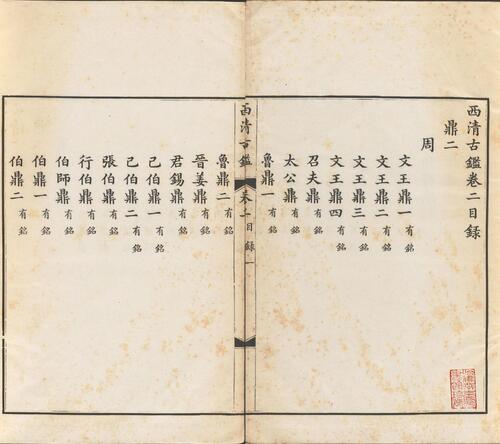 西清古鑑卷二目録
鼎二
周
文王鼎一有銘
文王鼎二有銘
文王鼎三有銘
文王鼎四有銘
召夫鼎有銘
太公鼎有銘
魯鼎一有銘
西清古鑑 卷二目録 一
魯鼎二有銘
晉姜鼎有銘
君錫鼎有銘
己伯鼎一有銘
己伯鼎二有銘
張伯鼎有銘
行伯鼎有銘
伯師鼎有銘
伯鼎一有銘
伯鼎二有銘